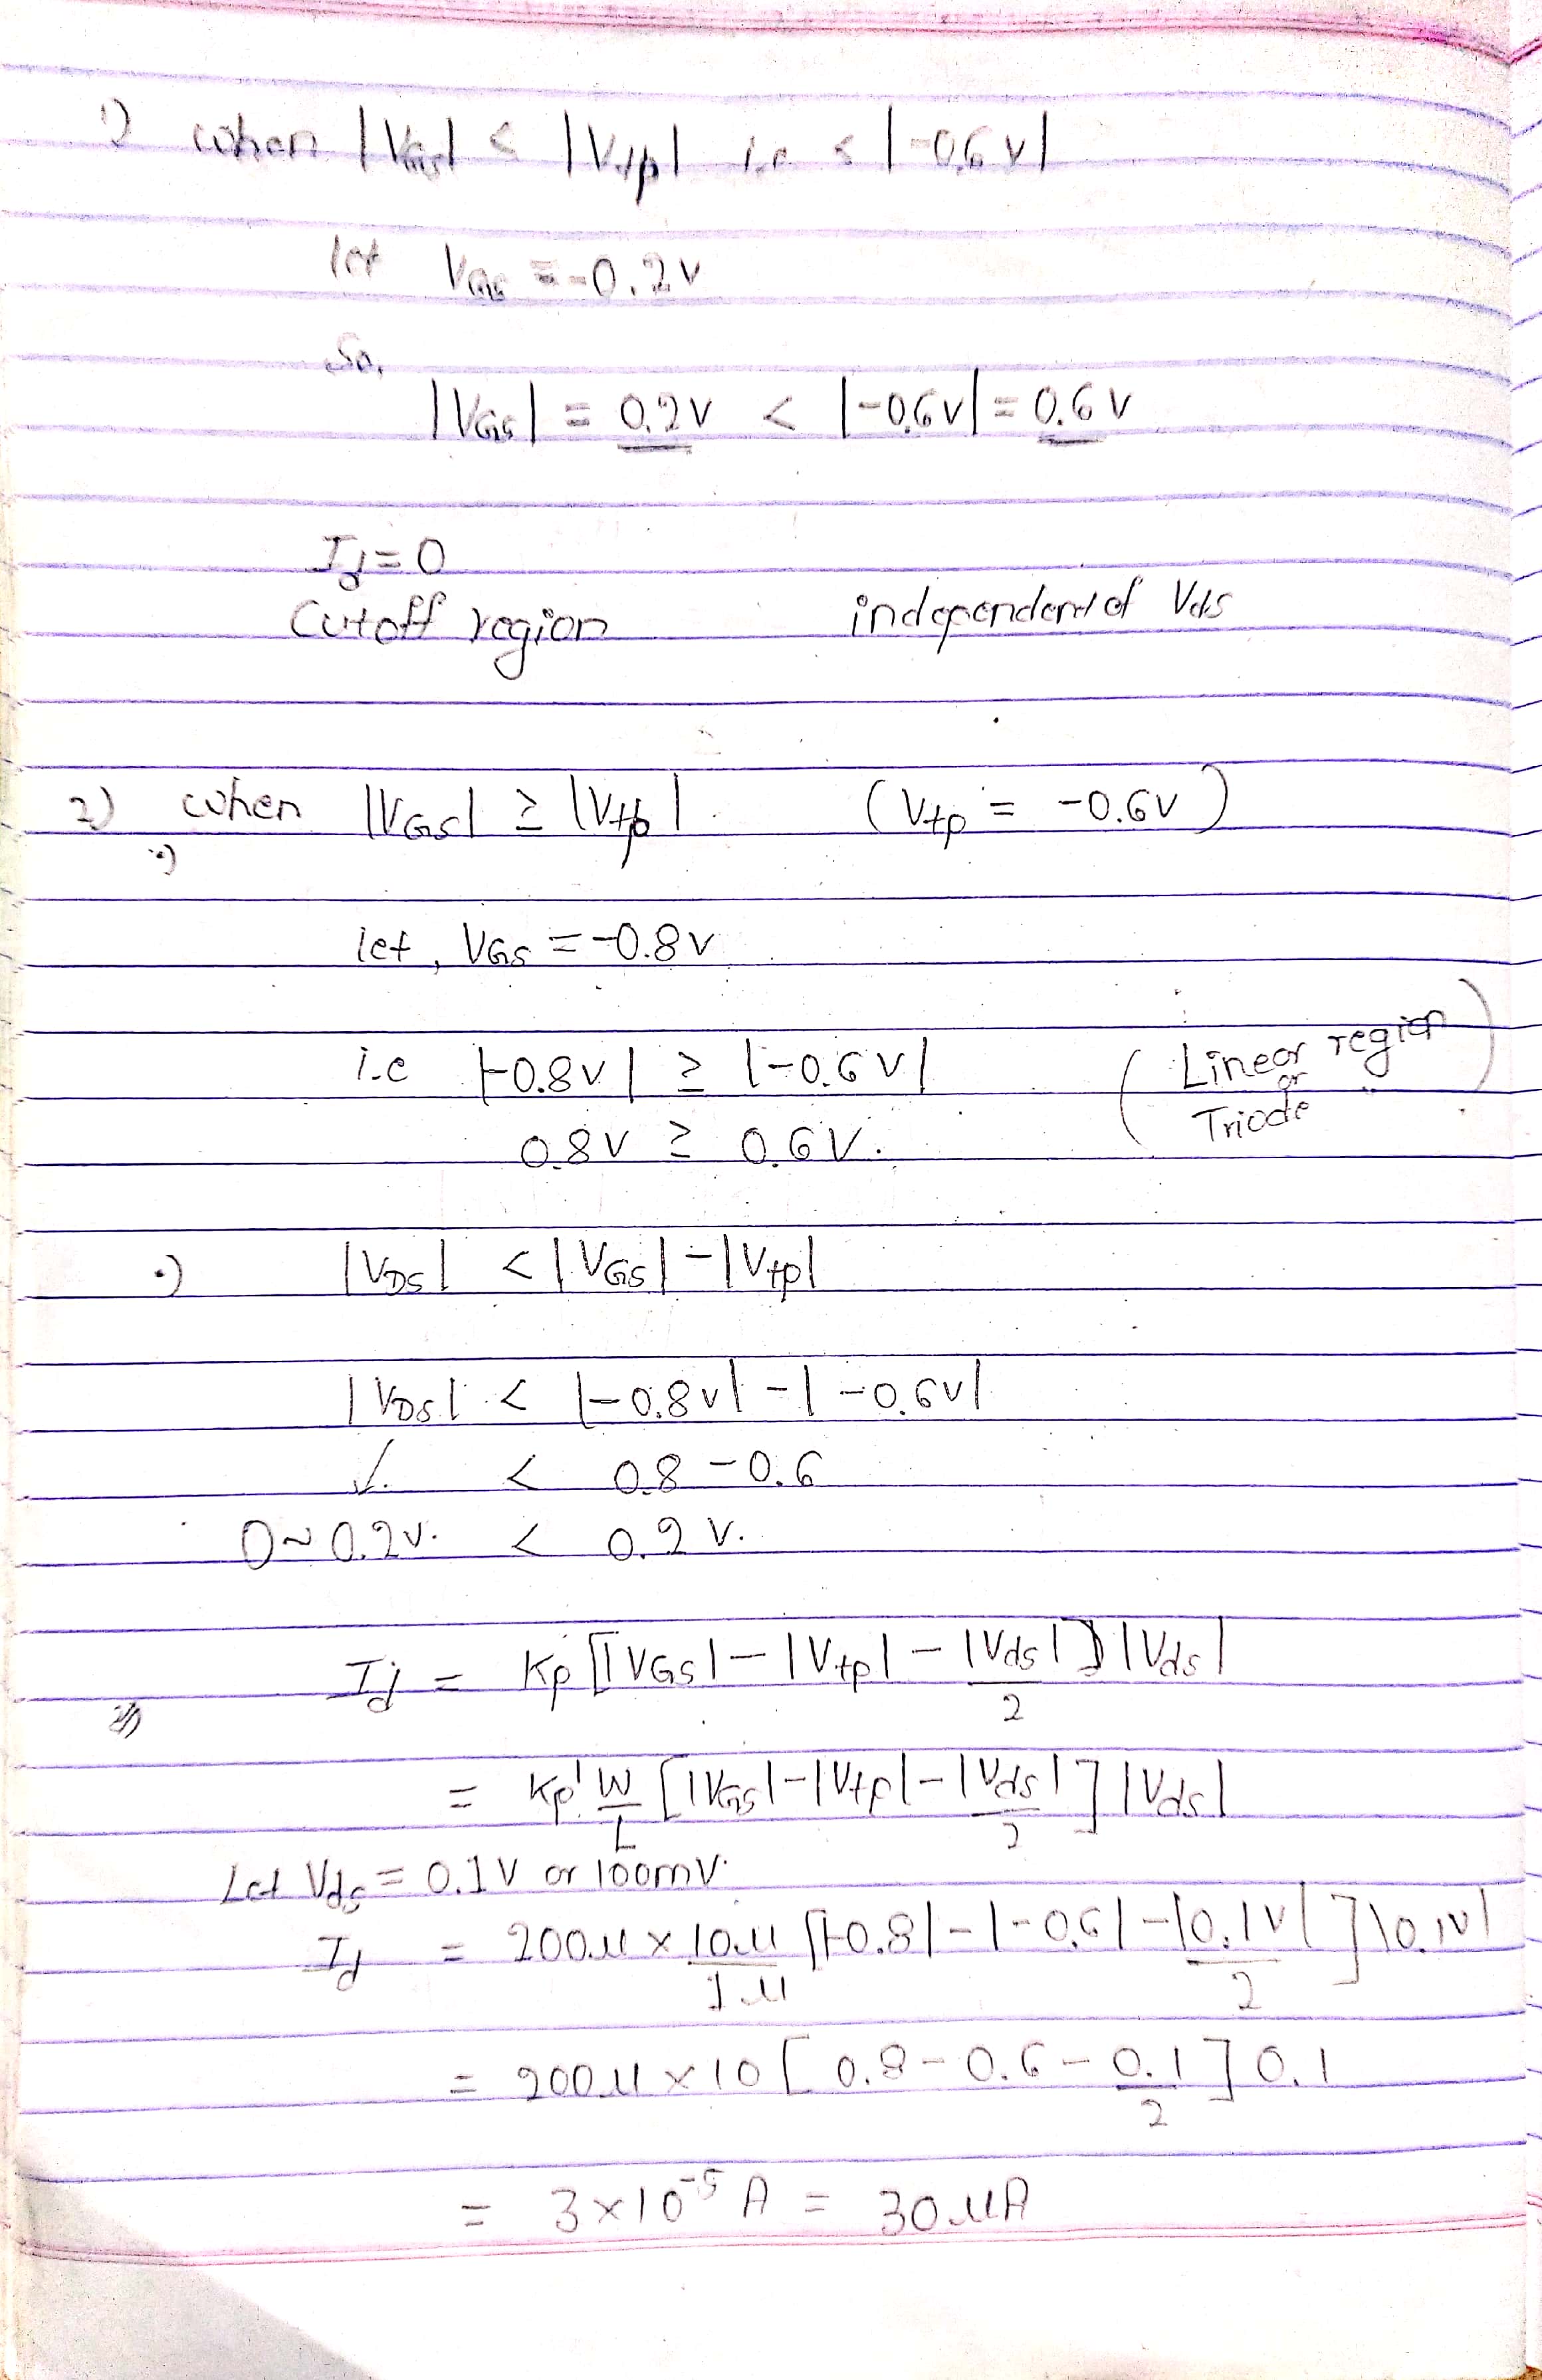 1) when |VGS| < |Vtp| i.e < |-0.6v|
let VGS = -0.2v
So,
|VGS| = 0.2v < |-0.6v| = 0.6v
Id = 0
Cutoff region independent of Vds
2) when |VGS| ≥ |Vtp|. (Vtp = -0.6v)
•)
let, VGS = -0.8v
i.e |-0.8v| ≥ |-0.6v| (Linear region
or
0.8v ≥ 0.6v. Triode)
•) |VDS| < |VGS| - |Vtp|
|VDS| < |-0.8v| - |-0.6v|
↓. < 0.8 - 0.6
0~0.2v. < 0.2 v.
Id = Kp [|VGS| - |Vtp| - |Vds|/2] |Vds|
= Kp' W/L [|VGS| - |Vtp| - |Vds|/2] |Vds|
Let Vds = 0.1V or 100mV.
Id = 200µ × 10µ/1µ [|-0.8| - |-0.6| - |0.1v|/2] |0.1v|
= 200µ × 10 [0.8 - 0.6 - 0.1/2] 0.1
= 3×10⁻⁵ A = 30µA